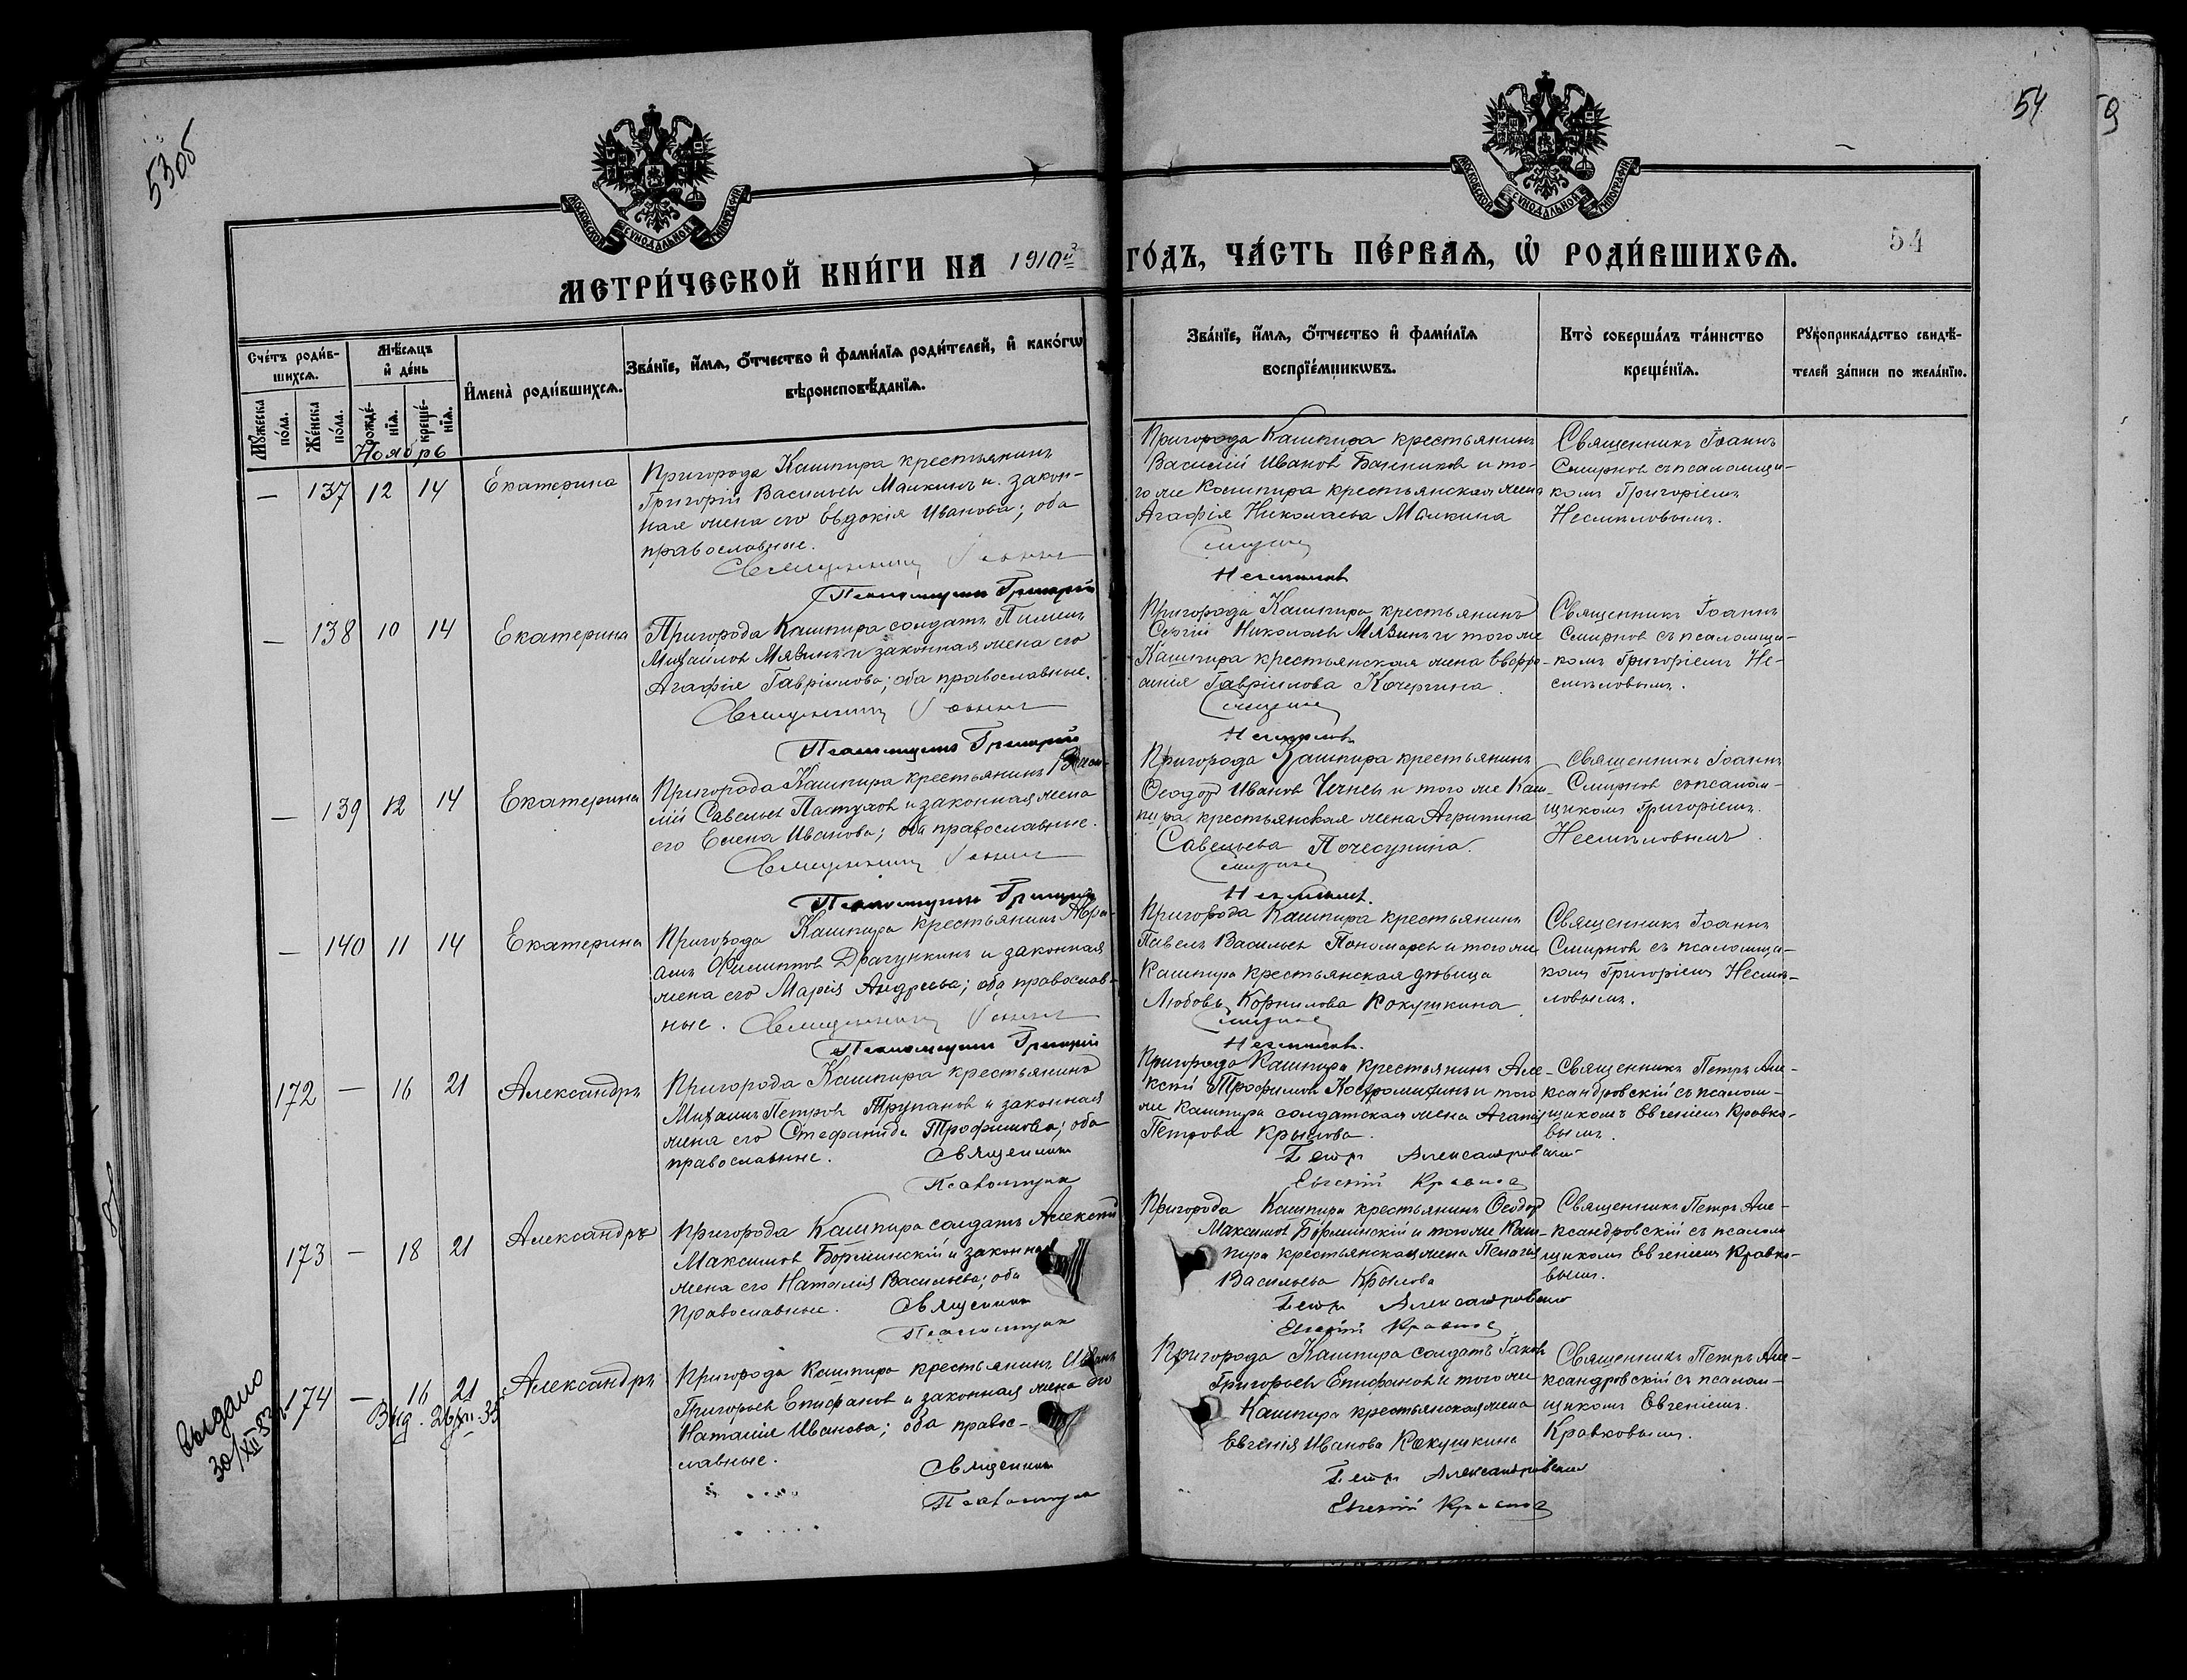 53об
54
9
МОСКОВСКОЙ СѴНОДАЛЬНОЙ ТИПОГРАФІИ
МОСКОВСКОЙ СѴНОДАЛЬНОЙ ТИПОГРАФІИ
МЕТРИ́ЧЕСКОЙ КНИ́ГИ НА 1910й
ГО́ДЪ, ЧА́СТЬ ПЕ́РВАѦ, Ѡ҆ РОДИ́ВШИХСѦ.
54
Сче́тъ роди́в-
шихсѧ.
Мѣ́сѧцъ
и҆ де́нь
И҆мена̀ роди́вшихсѧ.
Зва́нїе, и҆́мѧ, ѻ҆́тчество и҆ фами́лїѧ роди́телей, и҆ како́гѡ
вѣроисповѣ́данїѧ.
Мꙋ́жеска
по́ла.
Же́нска
по́ла.
рожде́-
нїѧ.
креще́-
нїѧ.
Зва́нїе, и҆́мѧ, ѻ҆́тчество и҆ фами́лїѧ
воспрїе́мникѡвъ.
Кто̀ соверша́лъ та́инство
креще́нїѧ.
Рꙋкоприкла́дство свидѣ́-
телей за́писи по жела́нїю.
Ноябрь
— 137 12 14 Екатерина
Пригорода Кашпира крестьянинъ
Григорій Васильевъ Малкинъ и закон-
ная жена его Евдокія Иванова; оба
православные.
Священникъ Іоаннъ
Псаломщикъ Григорій
Пригорода Кашпира крестьянинъ
Василій Ивановъ Банников и то-
го же Кашпира крестьянская жена
Агафія Николаева Малкина
Смирнов
Несмѣлов
Священникъ Іоаннъ
Смирнов съ псаломщи-
комъ Григоріемъ
Несмѣловымъ.
— 138 10 14 Екатерина
Пригорода Кашпира солдатъ Пименъ
Михайлов Мязинъ и законная жена его
Агафія Гавріилова; оба православные.
Священникъ Іоаннъ
Псаломщикъ Григорій
Пригорода Кашпира крестьянинъ
Сергій Николаевъ Мязинъ и того же
Кашпира крестьянская жена Евфро-
синія Гавріилова Кочергина.
Смирнов
Несмѣлов
Священникъ Іоаннъ
Смирнов съ псаломщи-
комъ Григоріемъ Не-
смѣловымъ.
— 139 12 14 Екатерина
Пригорода Кашпира крестьянинъ
лій Савельев Пастухов и законная жена
его Елена Иванова; оба православные.
Священникъ Іоаннъ
Псаломщикъ Григорій
Пригорода Кашпира крестьянинъ
Ѳеодор Иванов и того же Каш-
пира крестьянская жена Агрипина
Савельева
Смирнов
Несмѣлов.
Священникъ Іоаннъ
Смирнов съ псалом-
щикомъ Григоріемъ
Несмѣловымъ.
— 140 11 14 Екатерина
Пригорода Кашпира крестьянинъ Авра-
амъ Филиппов Драгункинъ и законная
жена его Марія Андреева; оба православ-
ные. Священникъ Іоаннъ
Псаломщикъ Григорій
Пригорода Кашпира крестьянинъ
Павелъ Васильев Пономарев и того же
Кашпира крестьянская дѣвица
Любовь Корнилова Кокушкина.
Смирнов
Несмѣлов.
Священникъ Іоаннъ
Смирнов съ псаломщи-
комъ Григоріемъ Несмѣ-
ловымъ.
172 — 16 21 Александръ
Пригорода Кашпира крестьянинъ
Михаилъ Петров Трупанов и законная
жена его Стефанида Трофимова; оба
православные. Священникъ
Псаломщик
Пригорода Кашпира крестьянинъ Але-
ксѣй Трофимов Костромихинъ и того
же Кашпира солдатская жена Агапія
Петрова Крылова.
Петръ Александровскій
Евгеній Кравков
Священникъ Петръ Але-
ксандровскій съ псалом-
щикомъ Евгеніемъ Кравко-
вымъ.
173 — 18 21 Александръ
Пригорода Кашпира солдатъ Алексѣй
Максимов Борминскій и законная
жена его Наталія Васильева; оба
православные. Священник
Псаломщик
Пригорода Кашпира крестьянинъ Ѳеодор
Максимов Борминскій и того же Каш-
пира крестьянская жена Пелагія
Васильева Крылова
Петръ Александровскій
Евгеній Кравков
Священникъ Петръ Але-
ксандровскій съ псалом
щикомъ Евгеніемъ Кравко-
вымъ.
выдано
30/XII 53
174 — 16 21 Александръ
Выд. 26/XII-35
Пригорода Кашпира крестьянинъ Иванъ
Григорьев Епифанов и законная жена его
Наталія Иванова; оба правос-
лавные.
Священник
Псаломщик
Пригорода Кашпира солдатъ Іаков
Григорьевъ Епифановъ и того же
Кашпира крестьянская жена
Евгенія Иванова Кокушкина
Петръ Александровскій
Евгеній Кравков
Священникъ Петръ Але-
ксандровскій съ псалом-
щикомъ Евгеніемъ
Кравковымъ.